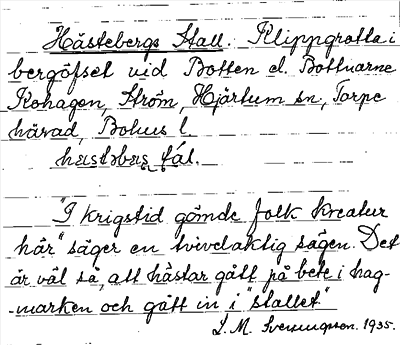 Hästebergs Stall. Klippgrotta i
bergöfset vid Botten el. Bottnarne
Kohagen, Ström, Hjärtum sn, Torpe
härad, Bohus l.
"I krigstid gömde folk kreatur
här" säger en tvivelaktig sägen. Det
är väl så, att hästar gått på bete i hag-
-marken och gått in i "stallet"
L. M. Svenungsson. 1935.